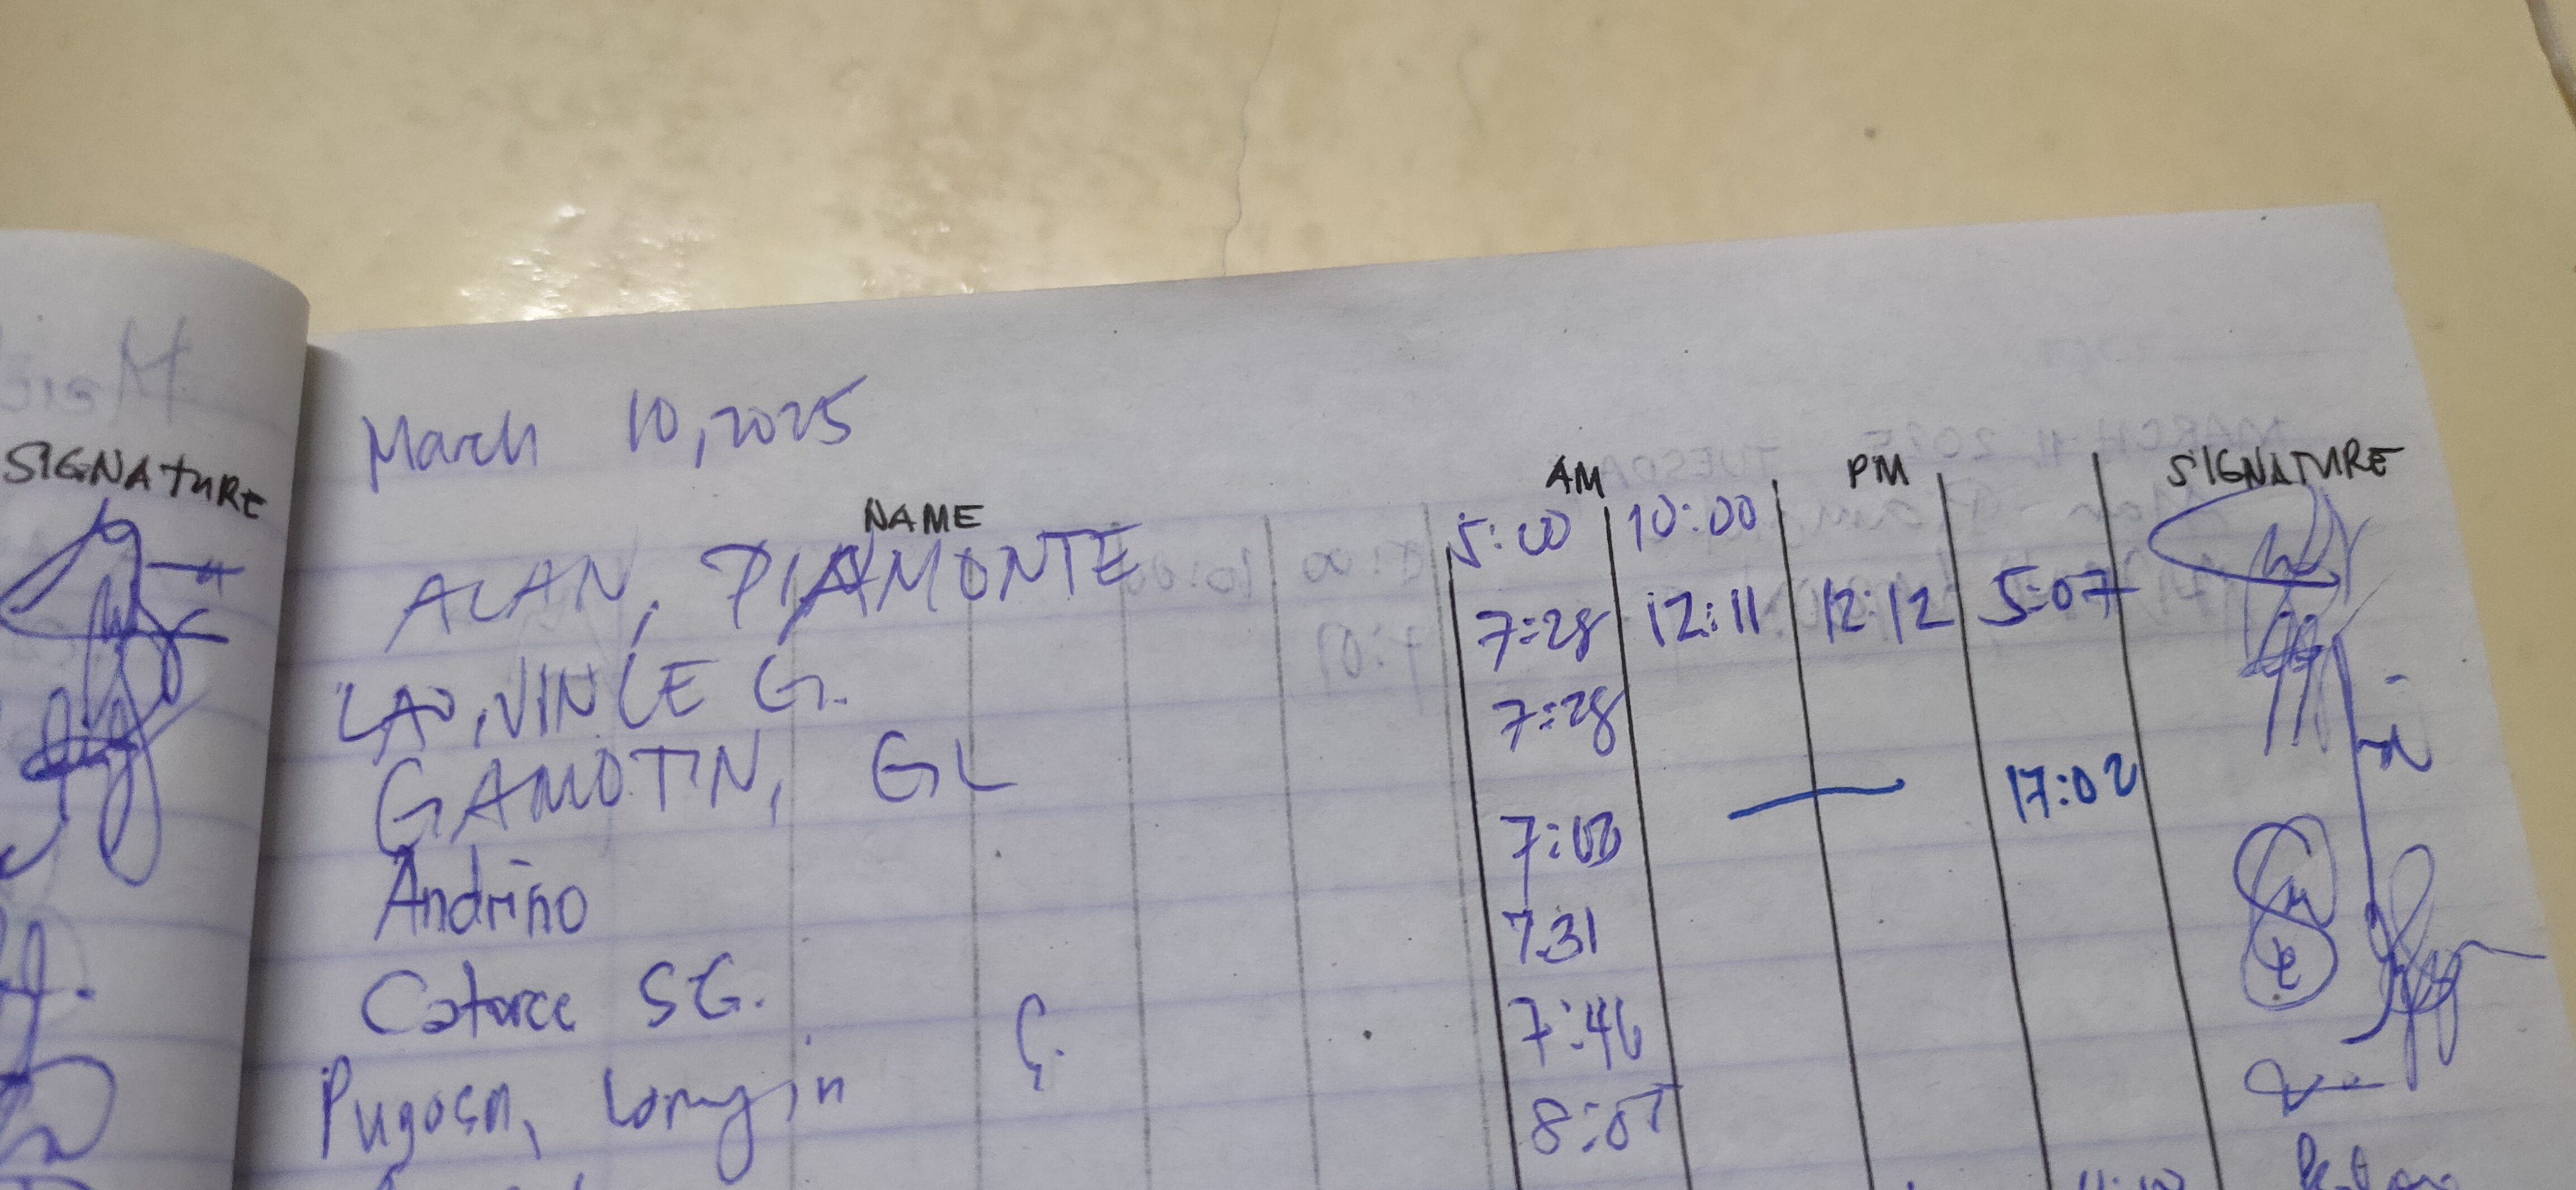 SIGNATURE
March 10, 2025
NAME AM PM SIGNATURE
ALAN, PIAMONTE 5:00 10:00
LAO, VINCE G. 7:28 12:11 12:12 5:07
GAMOTIN, GL 7:28
Andriño 7:00 17:02
Catarce SG. 7:31
Pugosa, Longin C. 7:46
8:07